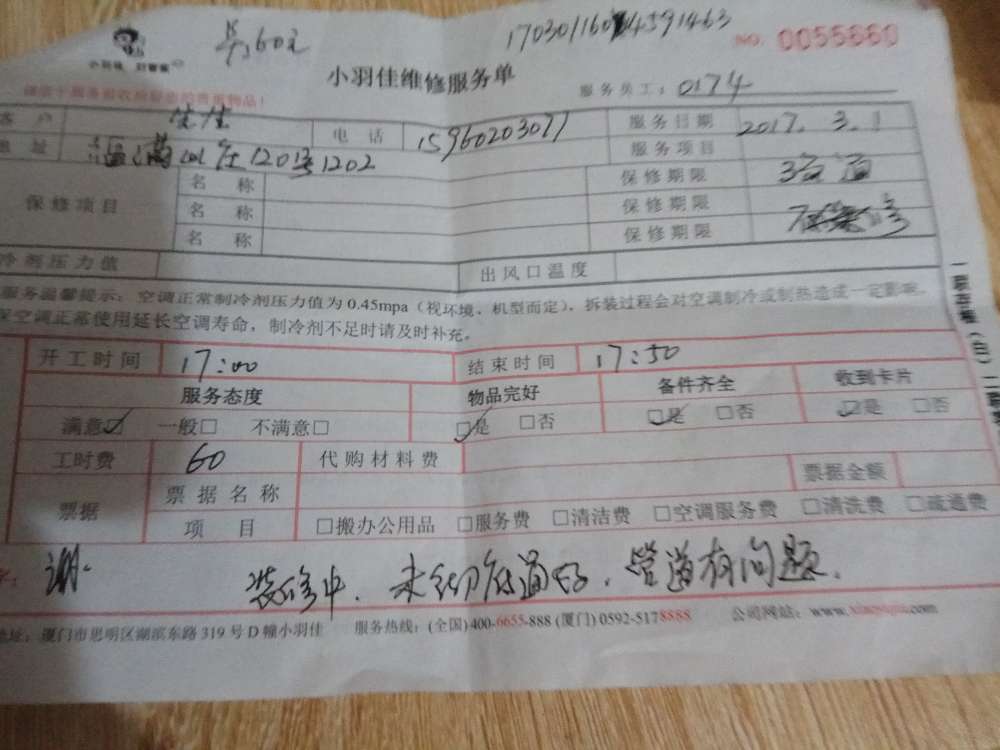 60元
NO. 0055660
小羽佳维修服务单
服务员工: 0174
客户 电话 15960203077 服务日期 2017. 3. 1
地址 1202 服务项目
保修项目 名称 保修期限
名称 保修期限
名称 保修期限
冷剂压力值 出风口温度
服务温馨提示: 空调正常制冷剂压力值为0.45mpa (视环境、机型而定), 拆装过程会对空调制冷或制热造成一定影响,
保空调正常使用延长空调寿命, 制冷剂不足时请及时补充。
开工时间 17:00 结束时间 17:50
服务态度 物品完好 备件齐全 收到卡片
满意☑ 一般□ 不满意□ ☑是 □否 ☑是 □否 ☑是 □否
工时费 60 代购材料费
票据 票据名称 票据金额
项目 □搬办公用品 □服务费 □清洁费 □空调服务费 □清洗费 □疏通费
装修中. 未 通好. 管道有问题.
地址: 厦门市思明区湖滨东路319号D幢小羽佳 服务热线: (全国) 400-6655-888 (厦门) 0592-5178888 公司网站: www.xiaoyujia.com